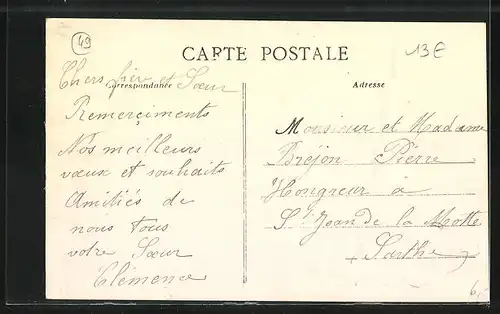 49
CARTE POSTALE
13€
Correspondance
Adresse
Chers frèr et Sœur
Remerciments
Nos meilleurs
vœux et souhaits
Amitiés de
nous tous
votre Sœur
Clémence
Monsieur et Madame
Bréjon Pierre
Hongreur à
St Jean de la Motte
Sarthe
6,-